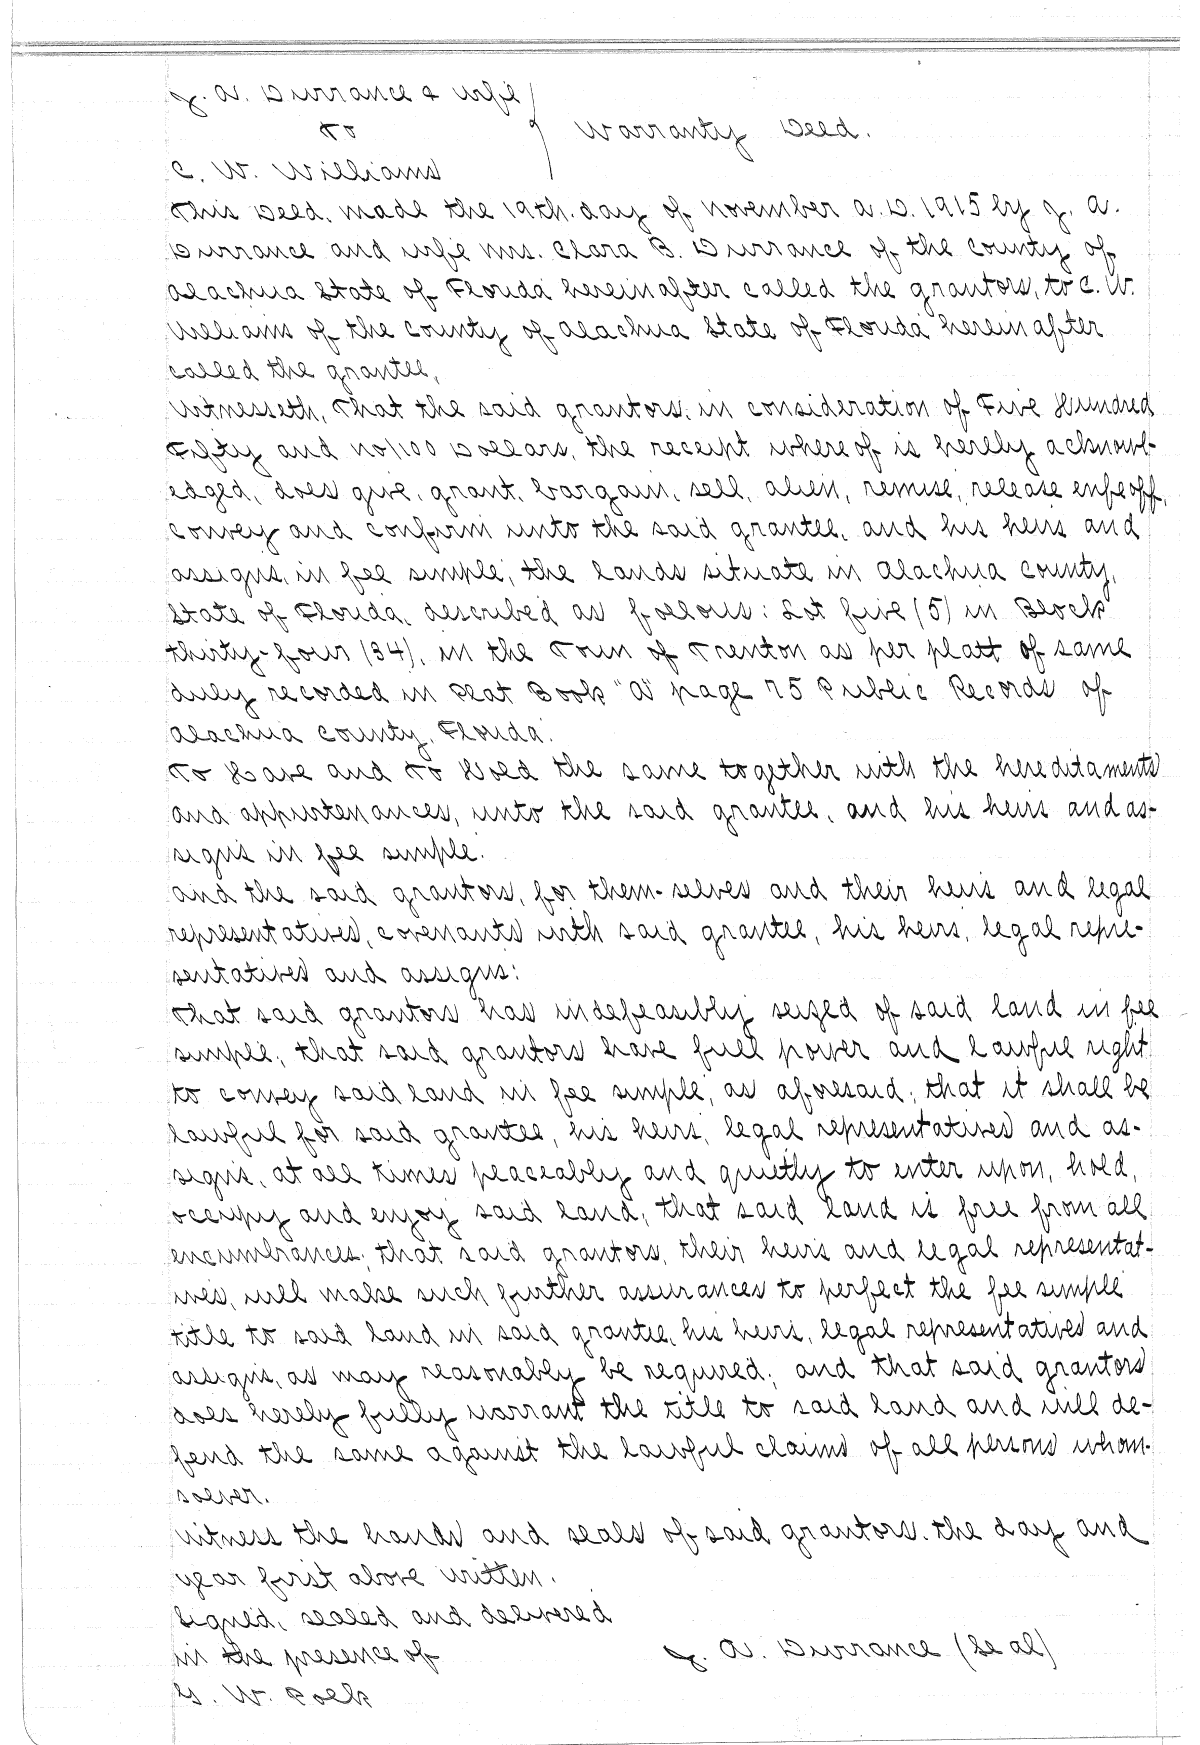 J. A. Durrance & wife
To Warranty Deed.
C. W. Williams
This Deed, made the 19th. day of November A.D. 1915 by J. A.
Durrance and wife Mrs. Clara B. Durrance of the County of
Alachua State of Florida hereinafter called the grantors, to C. W.
Williams of the County of Alachua State of Florida hereinafter
called the grantee,
Witnesseth, That the said grantors, in consideration of Five Hundred
Fifty and no/100 Dollars, the receipt whereof is hereby acknowl-
edged, does give, grant, bargain, sell, alien, remise, release enfeoff,
convey and confirm unto the said grantee, and his heirs and
assigns, in fee simple, the lands situate in Alachua County,
State of Florida, described as follows: Lot five (5) in Block
thirty-four (34), in the Town of Trenton as per platt of same
duly recorded in Plat Book "A" page 75 Public Records of
Alachua County, Florida.
To Have and To Hold the same together with the hereditaments
and appurtenances, unto the said grantee, and his heirs and as-
signs in fee simple.
And the said grantors, for them-selves and their heirs and legal
representatives, covenants with said grantee, his heirs, legal repre-
sentatives and assigns:
That said grantors has indefeasibly seized of said land in fee
simple; that said grantors have full power and lawful right
to convey said land in fee simple, as aforesaid; that it shall be
lawful for said grantee, his heirs, legal representatives and as-
signs, at all times peaceably and quietly to enter upon, hold,
occupy and enjoy said land; that said land is free from all
encumbrances; that said grantors, their heirs and legal representat-
ives, will make such further assurances to perfect the fee simple
title to said land in said grantee, his heirs, legal representatives and
assigns, as may reasonably be required; and that said grantors
does hereby fully warrant the title to said land and will de-
fend the same against the lawful claims of all persons whom-
soever.
Witness the hands and seals of said grantors the day and
year first above written.
Signed, sealed and delivered
in the presence of J. A. Durrance (Seal)
G. W. Polk